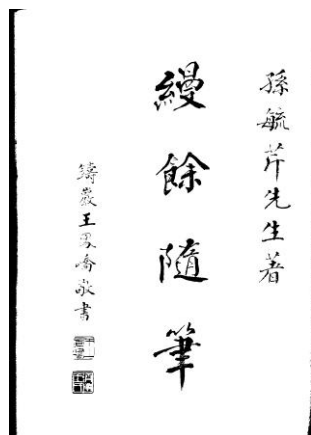 孫毓芹先生著
縵餘隨筆
鑄嚴王鳳喬敬書